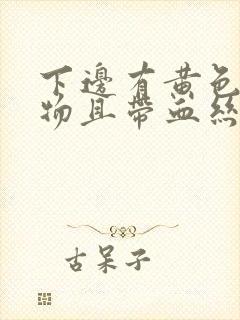 下邊有黃色
物且帶血絲
古呆子